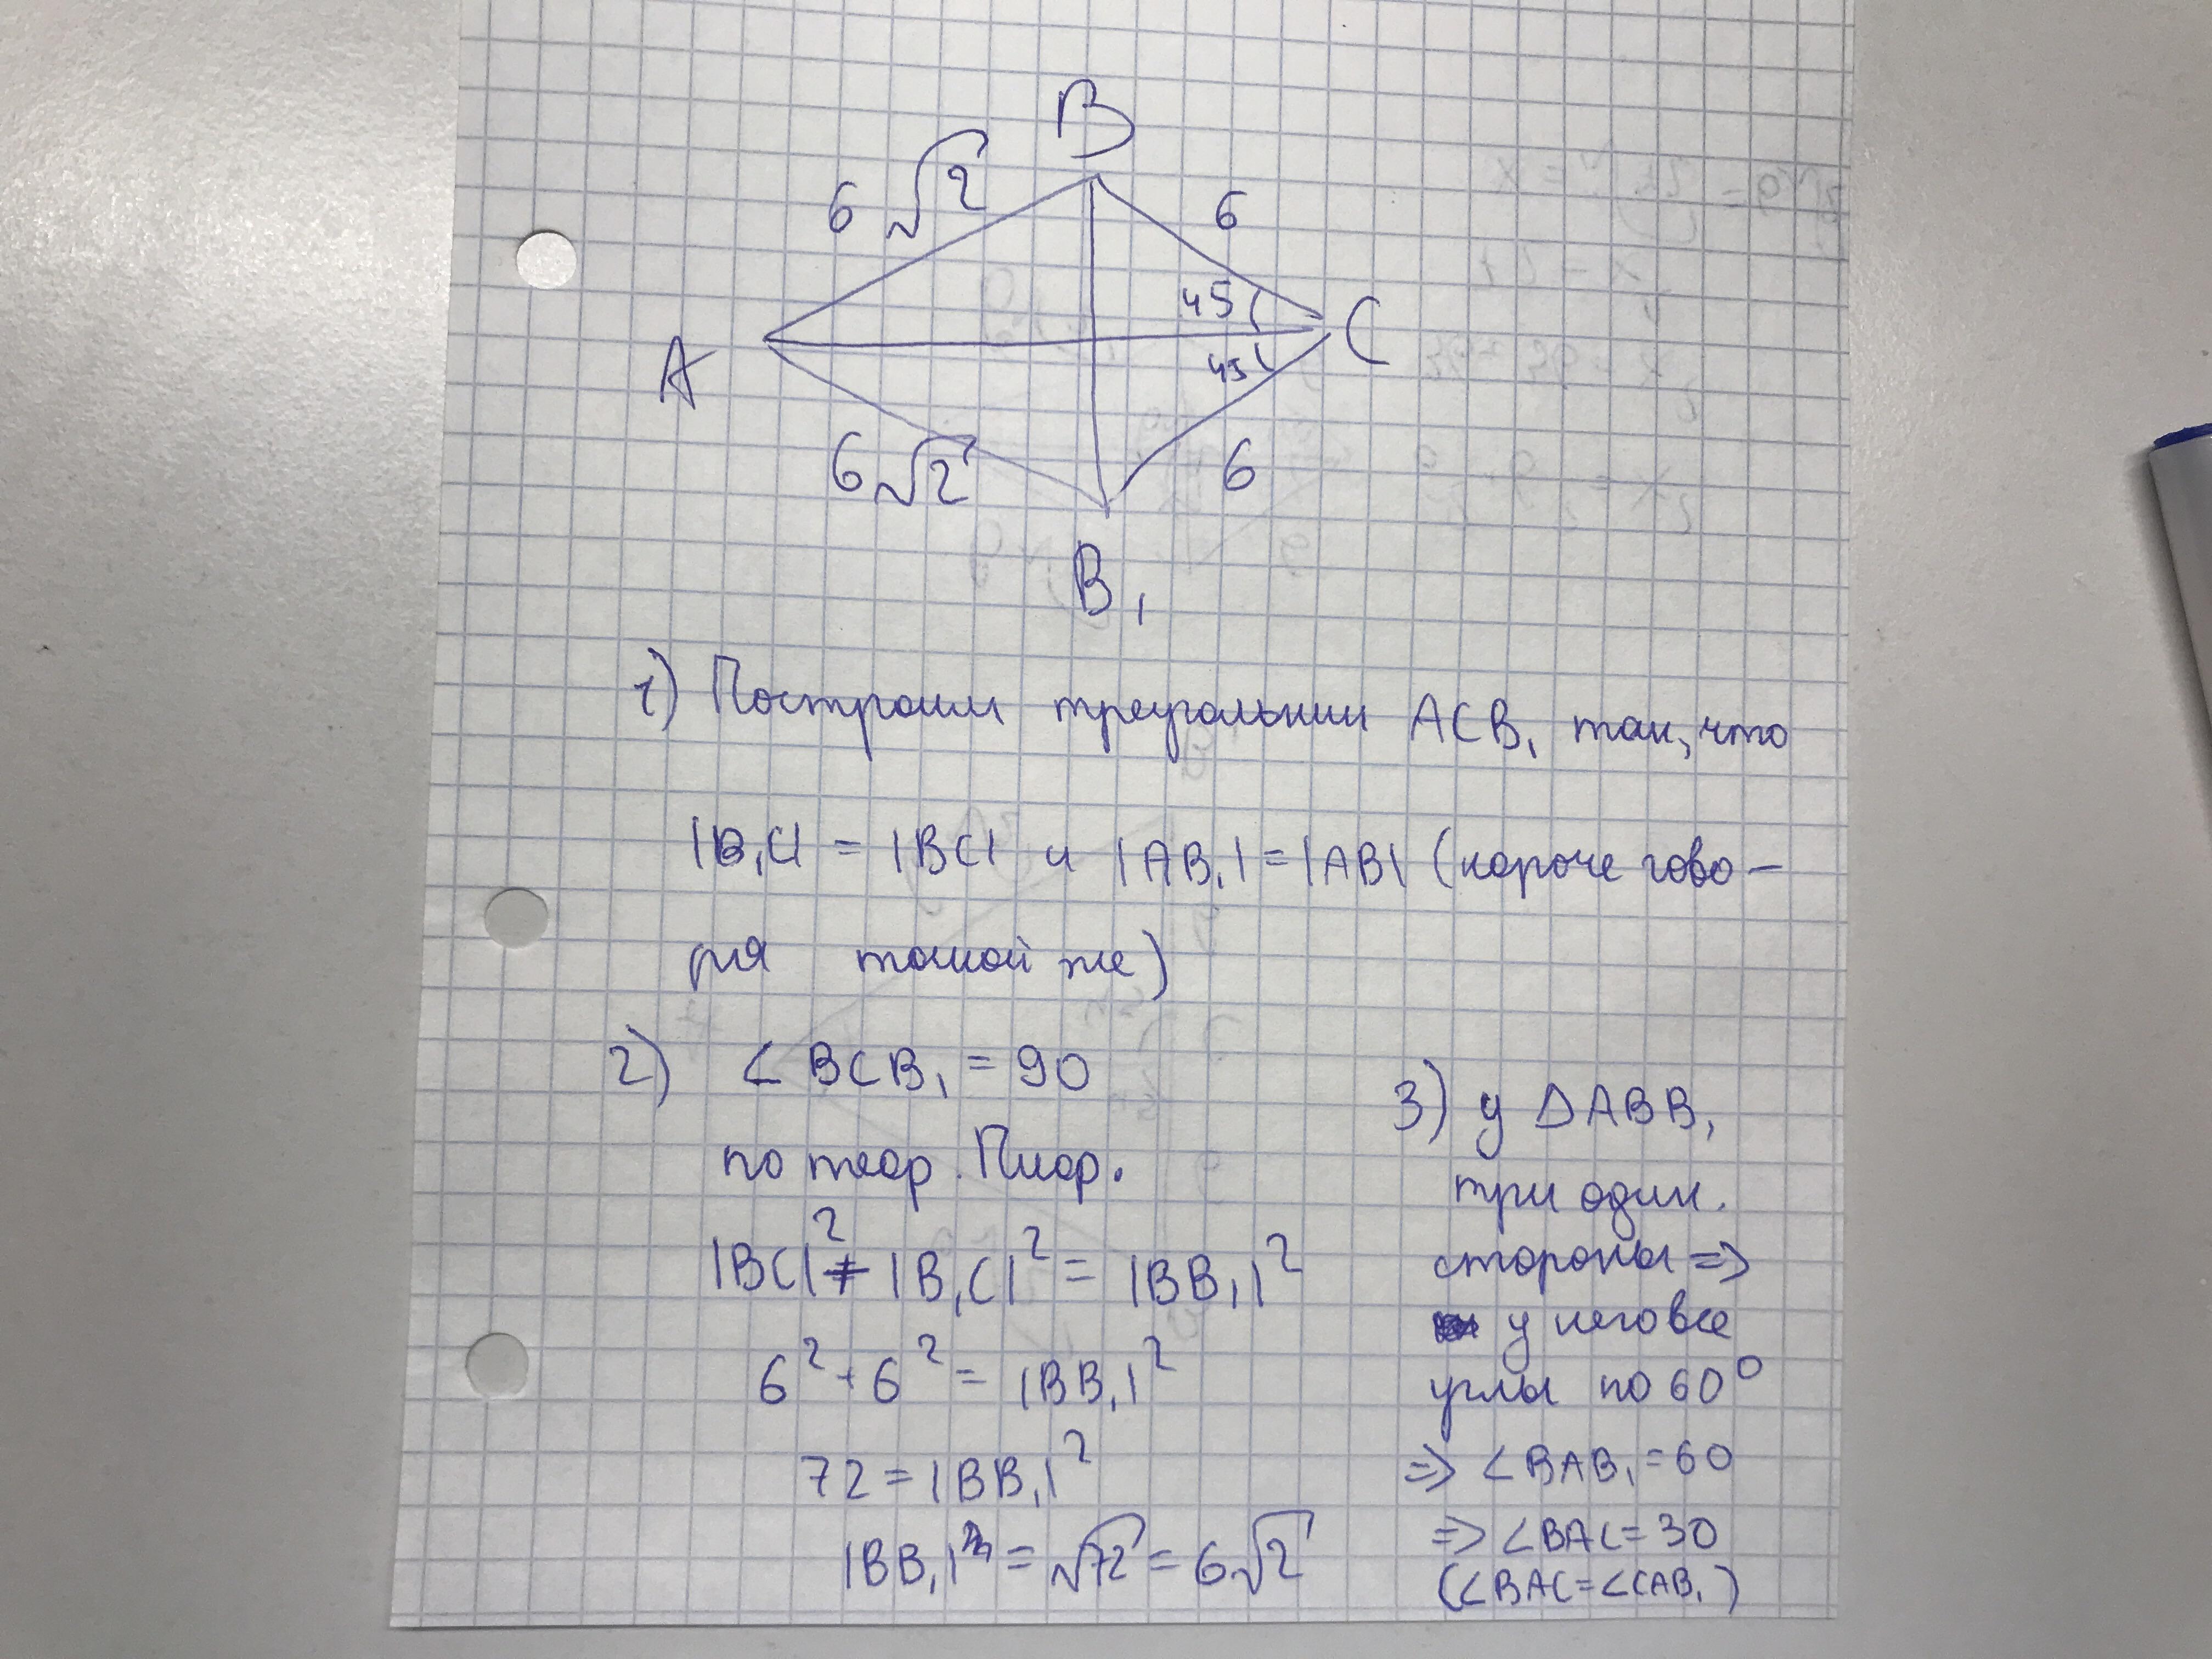 B
6√2
6
45
A
C
45
6√2
6
B₁
1) Построим треугольник ACB₁ так, что
|B₁C| = |BC| и |AB₁| = |AB| (короче гово-
ря такой же)
2) ∠BCB₁ = 90
по теор. Пифор.
|BC|² + |B₁C|² = |BB₁|²
6² + 6² = |BB₁|²
72 = |BB₁|²
|BB₁| = √72 = 6√2
3) у ΔABB₁
три один.
стороны =>
у него все
углы по 60°
=> ∠BAB₁ = 60
=> ∠BAC = 30
(∠BAC = ∠CAB₁)